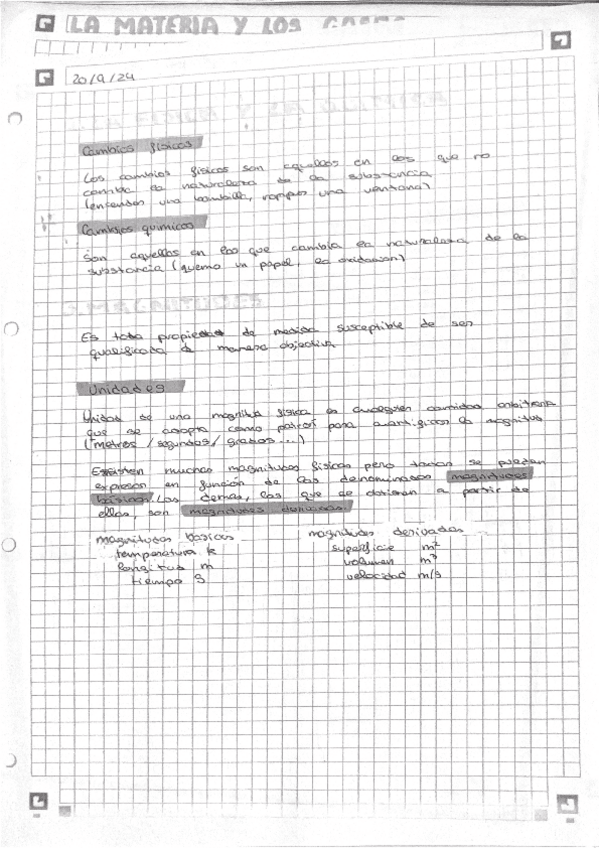 LA MATERIA Y LOS
20/9/24
Cambios físicos
Los cambios físicos son aquellos en los que no
cambia la naturaleza de la substancia
(encender una bombilla, romper una ventana)
Cambios químicos
Son aquellos en los que cambia la naturaleza de la
substancia (quema un papel, la oxidacion)
Es toda propiedad de medida susceptible de ser
qualificada de manera objectiva
Unidades
Unidad de una magnitud física es cualquier cantidad arbitraria
que se adopta como patrón para cuantificar la magnitud
(metros / segundos / grados ...)
Existen muchas magnitudes físicas pero todas se pueden
expresar en función de las denominadas magnitudes
básicas. Las demas, las que se derivan a partir de
ellas, son magnitudes derivadas.
magnitudes basicas magnitudes derivadas
temperatura k superficie m²
longitud m volumen m³
tiempo s velocidad m/s